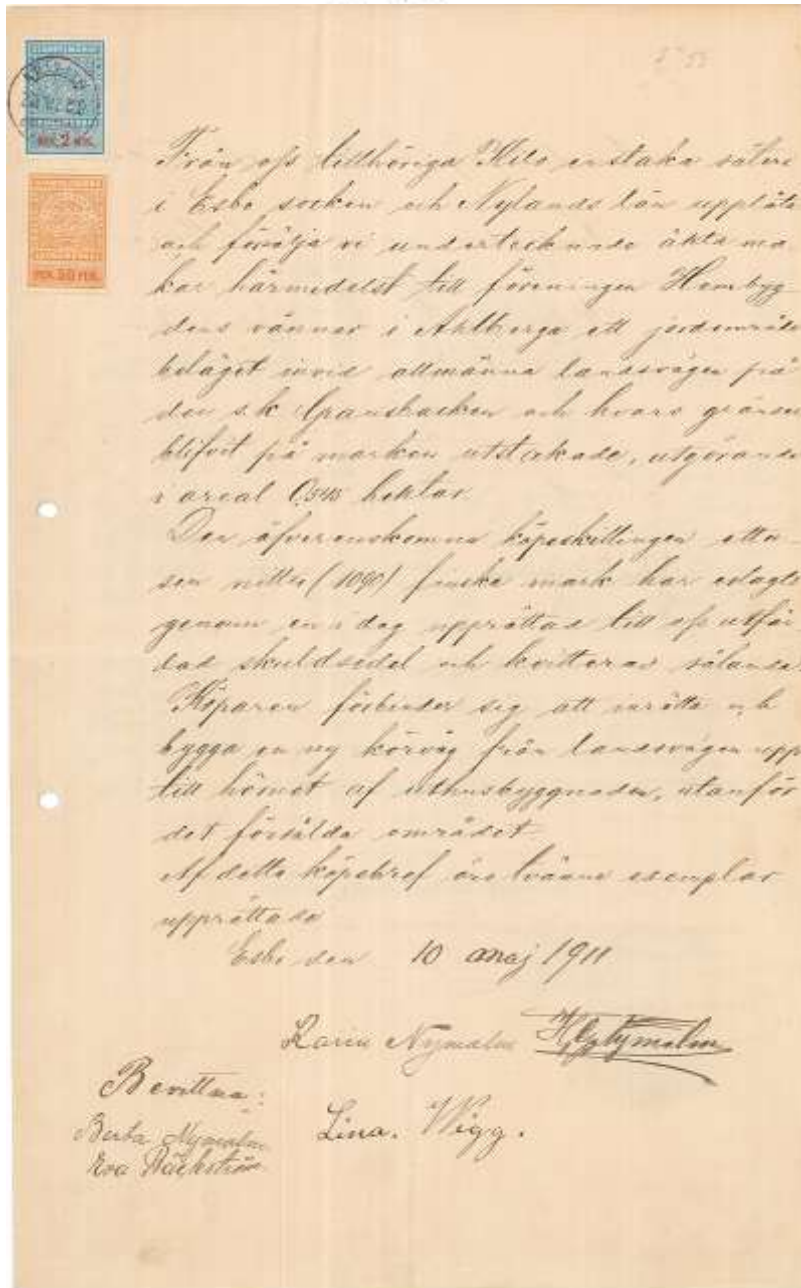 MRK. 2 MRK.
PEN. 50 PEN.
Från oss tillhöriga Kilo enstaka säteri
i Esbo socken och Nylands län upplåta
och försälja vi undertecknade äkta ma
kar härmedelst till föreningen Hembyg
dens vänner i Ahlberga ett jordområde
beläget invid allmänna landsvägen på
den s.k. Gransbacken och hvars gränser
blifvit på marken utstakade, utgörande
i areal 0,545 hektar.
Den öfverenskomna köpeskillingen ettu-
sen nittio (1090) finska mark har erlagts
genom en i dag upprättad till oss utfär-
dad skuldsedel och kvitteras sålunda.
Köparen förbinder sig att inrätta och
bygga en ny körväg från landsvägen upp
till hörnet af uthusbyggnaden, utanför
det försålda området.
Af detta köpebref äro tvänne exemplar
upprättade
Esbo den 10 maj 1911
Karin Nymalm
Bevittna:
Lina. Wigg.
Berta Nymalm
Eva Bäckström